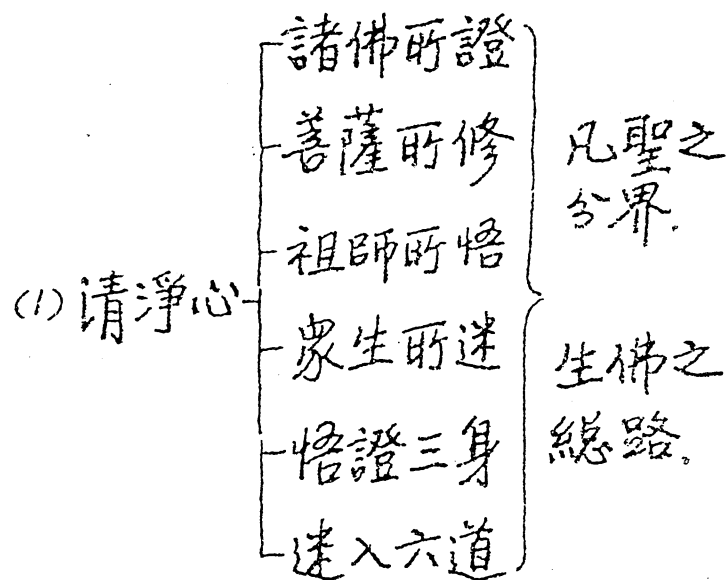 (1)清淨心
諸佛所證
菩薩所修
祖師所悟
眾生所迷
悟證三身
迷入六道
凡聖之
分界.
生佛之
總路。